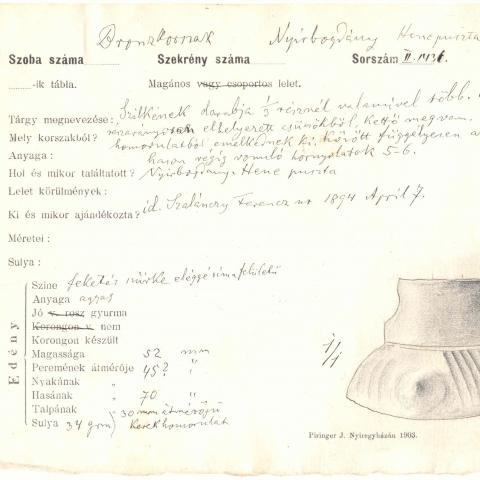 Bronzkorszak Nyirbogdány Hene puszta
Szoba száma Szekrény száma Sorszám II.
-ik tábla. Magános vagy csoportos lelet.
Tárgy megnevezése: Szilkének darabja 1/3 résznél valamivel több.
Mely korszakból? elhelyezett csücsökből, kettő megvan.
Anyaga : homorulatból emelkednek ki. Körött függelyesen a
hason végig vonuló hornyolatok 5-6.
Hol és mikor találtatott? Nyirbogdány Hene puszta
Lelet körülmények :
Ki és mikor ajándékozta? id. Szalánczy Ferencz ur 1894 April 7.
Méretei :
Sulya :
Edény
Szine feketés szürke eléggé sima felületű
Anyaga agyag
Jó v. rosz gyurma
Korongon v. nem
Korongon készült
Magassága 52 mm
Peremének átmérője 45? "
Nyakának "
Hasának " 70 "
Talpának " 30 mm átmérőjű
Sulya 34 grm kerek homorulat
1/1
Piringer J. Nyiregyházán 1903.